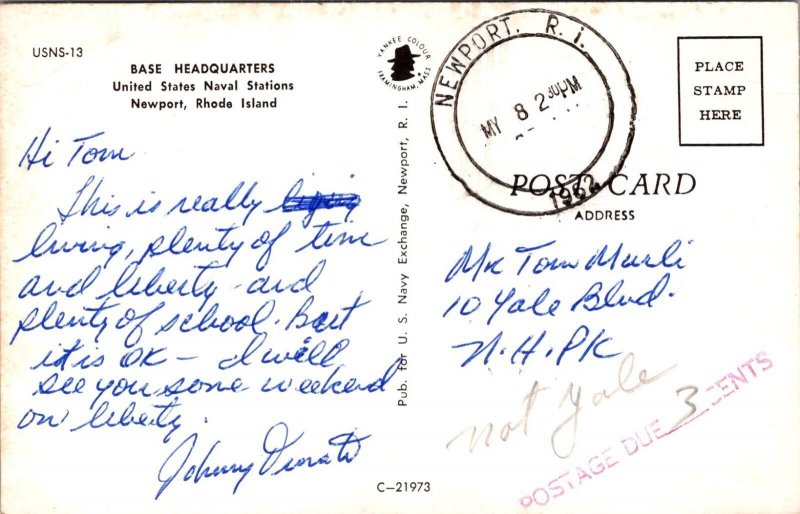 USNS-13
BASE HEADQUARTERS
United States Naval Stations
Newport, Rhode Island
Hi Tom
This is really
living, plenty of time
and liberty and
plenty of school. But
it is OK — I will
see you some weekend
on liberty.
Johnny
YANKEE COLOUR
FRAMINGHAM, MASS
Pub. for U. S. Navy Exchange, Newport, R. I.
C—21973
NEWPORT. R. I.
MY 8 2 30 PM
1962
PLACE
STAMP
HERE
POST CARD
ADDRESS
Mr Tom
10 Yale Blvd.
N.H.PK
not Yale
POSTAGE DUE 3 CENTS